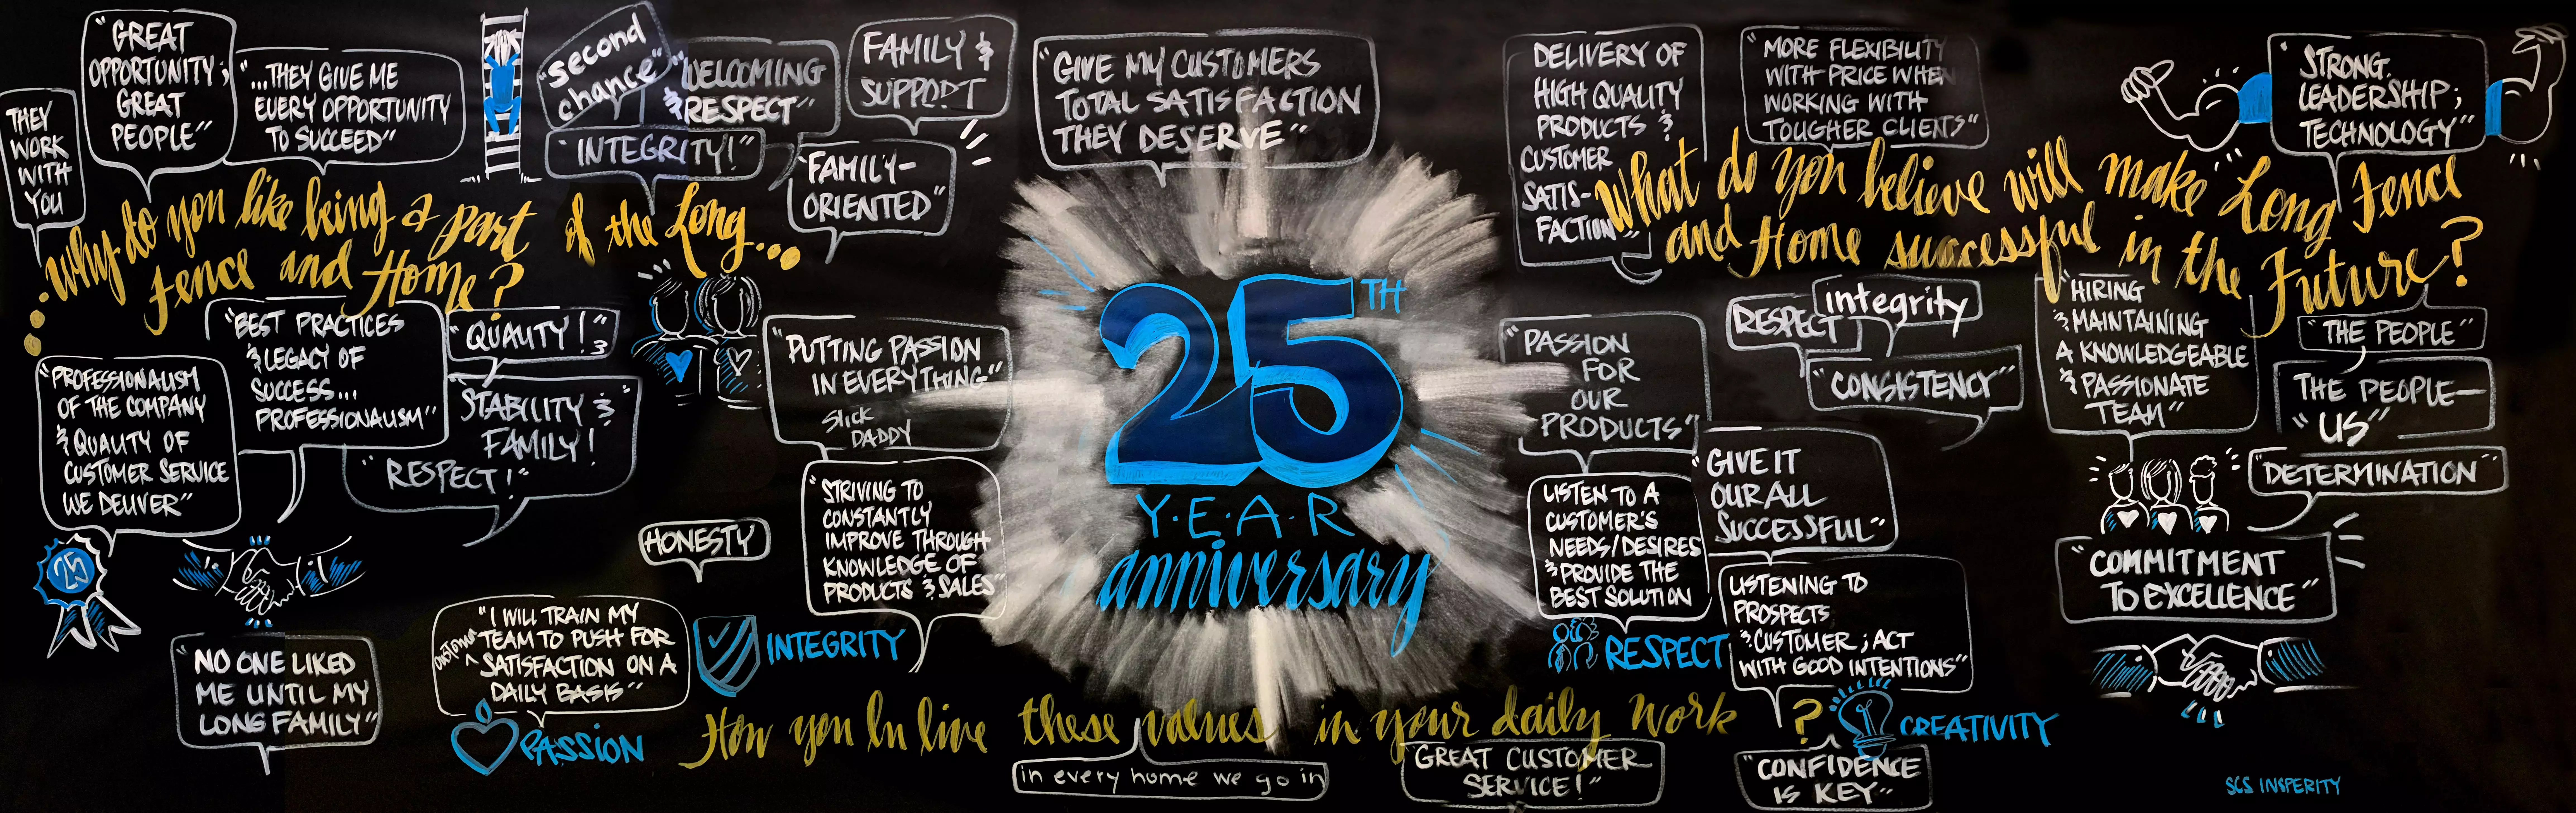 THEY
WORK
WITH
YOU
"GREAT
OPPORTUNITY;
GREAT
PEOPLE"
"...THEY GIVE ME
EVERY OPPORTUNITY
TO SUCCEED"
"second
chance"
"WELCOMING
& RESPECT"
FAMILY &
SUPPORT
"INTEGRITY!"
"FAMILY-
ORIENTED"
Why do you like being a part of the Long...
Fence and Home?
"BEST PRACTICES
& LEGACY OF
SUCCESS...
PROFESSIONALISM"
"QUALITY!"
&
"STABILITY &
FAMILY!
"RESPECT!"
"PROFESSIONALISM
OF THE COMPANY
& QUALITY OF
CUSTOMER SERVICE
WE DELIVER"
25
"NO ONE LIKED
ME UNTIL MY
LONG FAMILY"
"GIVE MY CUSTOMERS
TOTAL SATISFACTION
THEY DESERVE"
"PUTTING PASSION
IN EVERYTHING"
Slick
DADDY
"STRIVING TO
CONSTANTLY
IMPROVE THROUGH
KNOWLEDGE OF
PRODUCTS & SALES"
HONESTY
"I WILL TRAIN MY
TEAM TO PUSH FOR
CUSTOMER
SATISFACTION ON A
DAILY BASIS"
INTEGRITY
PASSION
25TH
Y·E·A·R
anniversary
DELIVERY OF
HIGH QUALITY
PRODUCTS &
CUSTOMER
SATIS-
FACTION"
"MORE FLEXIBILITY
WITH PRICE WHEN
WORKING WITH
TOUGHER CLIENTS"
"STRONG
LEADERSHIP;
TECHNOLOGY"
What do you believe will make Long Fence
and Home successful in the Future?
"PASSION
FOR
OUR
PRODUCTS"
RESPECT
integrity
"CONSISTENCY"
"HIRING
& MAINTAINING
A KNOWLEDGEABLE
& PASSIONATE
TEAM"
"THE PEOPLE"
THE PEOPLE—
"US"
"DETERMINATION"
"COMMITMENT
TO EXCELLENCE"
"GIVE IT
OUR ALL
SUCCESSFUL"
LISTEN TO A
CUSTOMER'S
NEEDS/DESIRES
& PROVIDE THE
BEST SOLUTION
LISTENING TO
PROSPECTS,
& CUSTOMER; ACT
WITH GOOD INTENTIONS"
RESPECT
CREATIVITY
How you ln live these values in your daily work?
in every home we go in
"GREAT CUSTOMER
SERVICE!"
"CONFIDENCE
IS KEY"
SCS INSPERITY